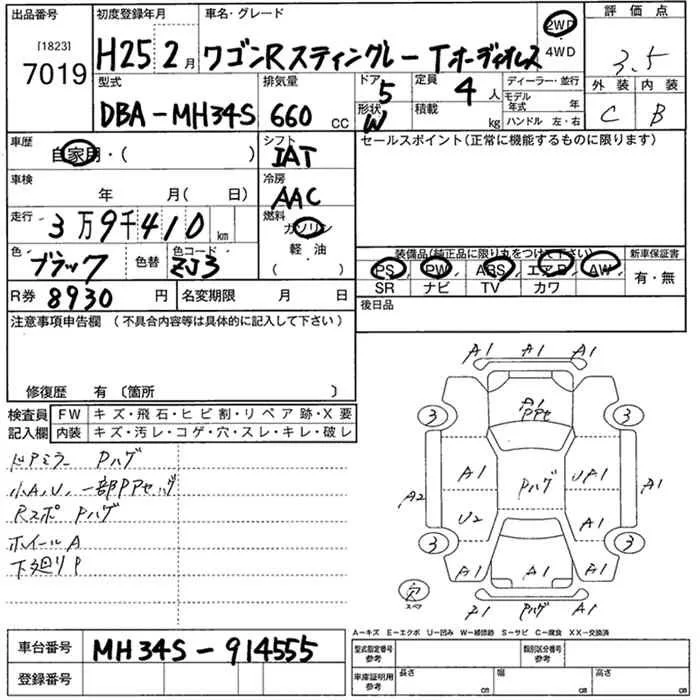 出品番号 初度登録年月 車名・グレード 2WD 評価点
[1823] 7019 H25 2月 ワゴンRスティングレー Tオーディオレス 4WD 3.5
型式 排気量 ドア 5 定員 4人 ディーラー・並行 外装 内装
DBA-MH34S 660cc 形状 W 積載 kg モデル年式 年 C B
ハンドル 左・右
車歴 自家用・( ) シフト IAT セールスポイント(正常に機能するものに限ります)
車検 年 月( 日) 冷房 AAC
走行 3万9千410km 燃料 ガソリン
軽油
色 ブラック 色替 色コード ZJ3 装備品(純正品に限り丸をつけて下さい) 新車保証書
PS PW ABS エアB AW 有・無
R券 8930円 名変期限 月 日 SR ナビ TV カワ
注意事項申告欄 (不具合内容等は具体的に記入して下さい) 後日品
修復歴 有 〔箇所 〕
検査員 FW キズ・飛石・ヒビ割・リペア跡・X要
記入欄 内装 キズ・汚レ・コゲ・穴・スレ・キレ・破レ
ドアミラー Pハゲ
小A.U. 一部PPセハゲ
Rスポ Pハゲ
ホイールA
下廻りP
A1 A1 A1
3 A1 PPセ 3
A1 Pハゲ UA1
A2 A1
U2 A1
3 3
A1 A1 A1
穴 スペア P1 Pハゲ A1
A-キズ E-エクボ U-凹み W-補修跡 S-サビ C-腐食 XX-交換済
車台番号 MH34S-914555
登録番号
型式指定番号 参考 類別区分番号 参考
車庫証明用 参考 長さ cm 幅 cm 高さ cm